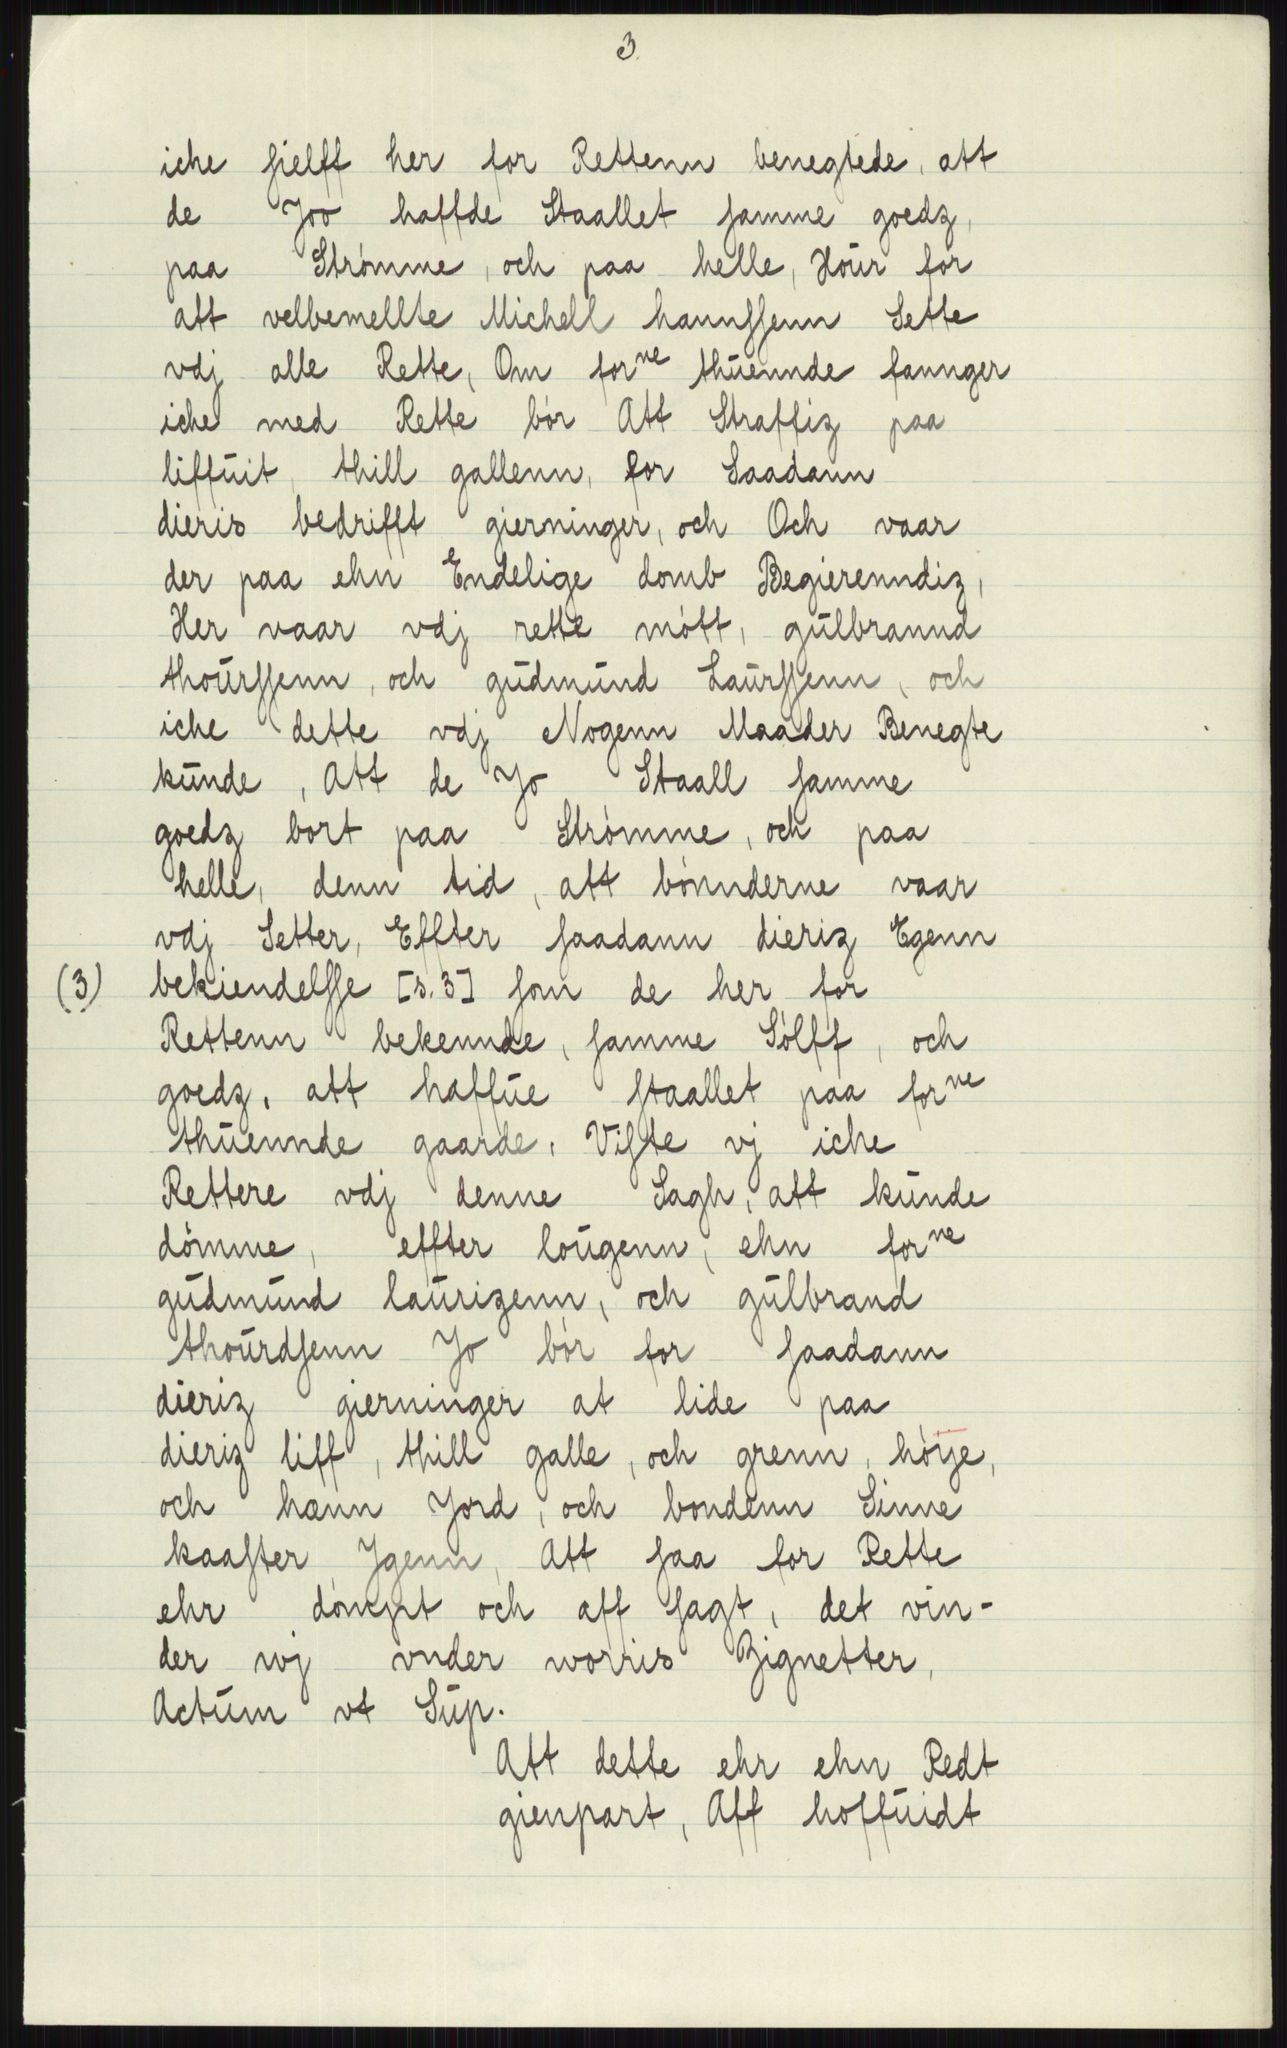 3
iche ſielff her for Rettenn benegtede, att
de Joo haffde Staallet ſamme goedz,
paa Strømme, och paa helle, Hour for
att velbemellte Michell hannſſenn Sette
vdj alle Rette, Om forne thuennde fannger
iche med Rette bør Att Straffiz paa
liffuit, thill gallenn, for Saadann
dieris bedrifft gierninger, och Och vaar
der paa ehn Endelige domb Begierenndiz,
Her vaar vdj rette mött, gulbrannd
thourſſenn, och gudmund Laurſſenn, och
iche dette vdj Nogenn Maader Benegte
kunde, Att de Jo Staall ſamme
goedz bort paa Strømme, och paa
helle, denn tid, att bønnderne vaar
vdj Setter, Effter ſaadann dieriz Egenn
(3) bekiendelſſe [s. 3] ſom de her for
Rettenn bekennde, ſamme Sølff, och
goedz, att haffue ſtaallet paa forne
thuennde gaarde, Viſte vj iche
Rettere vdj denne Sagh, att kunde
dømme, effter lougenn, ehn forne
gudmund laurizenn, och gulbrand
thourdſenn Jo bør for ſaadann
dieriz gierninger at lide paa
dieriz liff, thill galle, och grenn, høye,
och hænn Jord, och bondenn Sinne
kaaſter Jgenn, Att ſaa for Rette
ehr dømpt och aff ſagt, det vin-
der wj vnder worris Zignetter,
Actum vt Sup.
Att dette ehr ehn Redt
gienpart, Aff hoffuidt